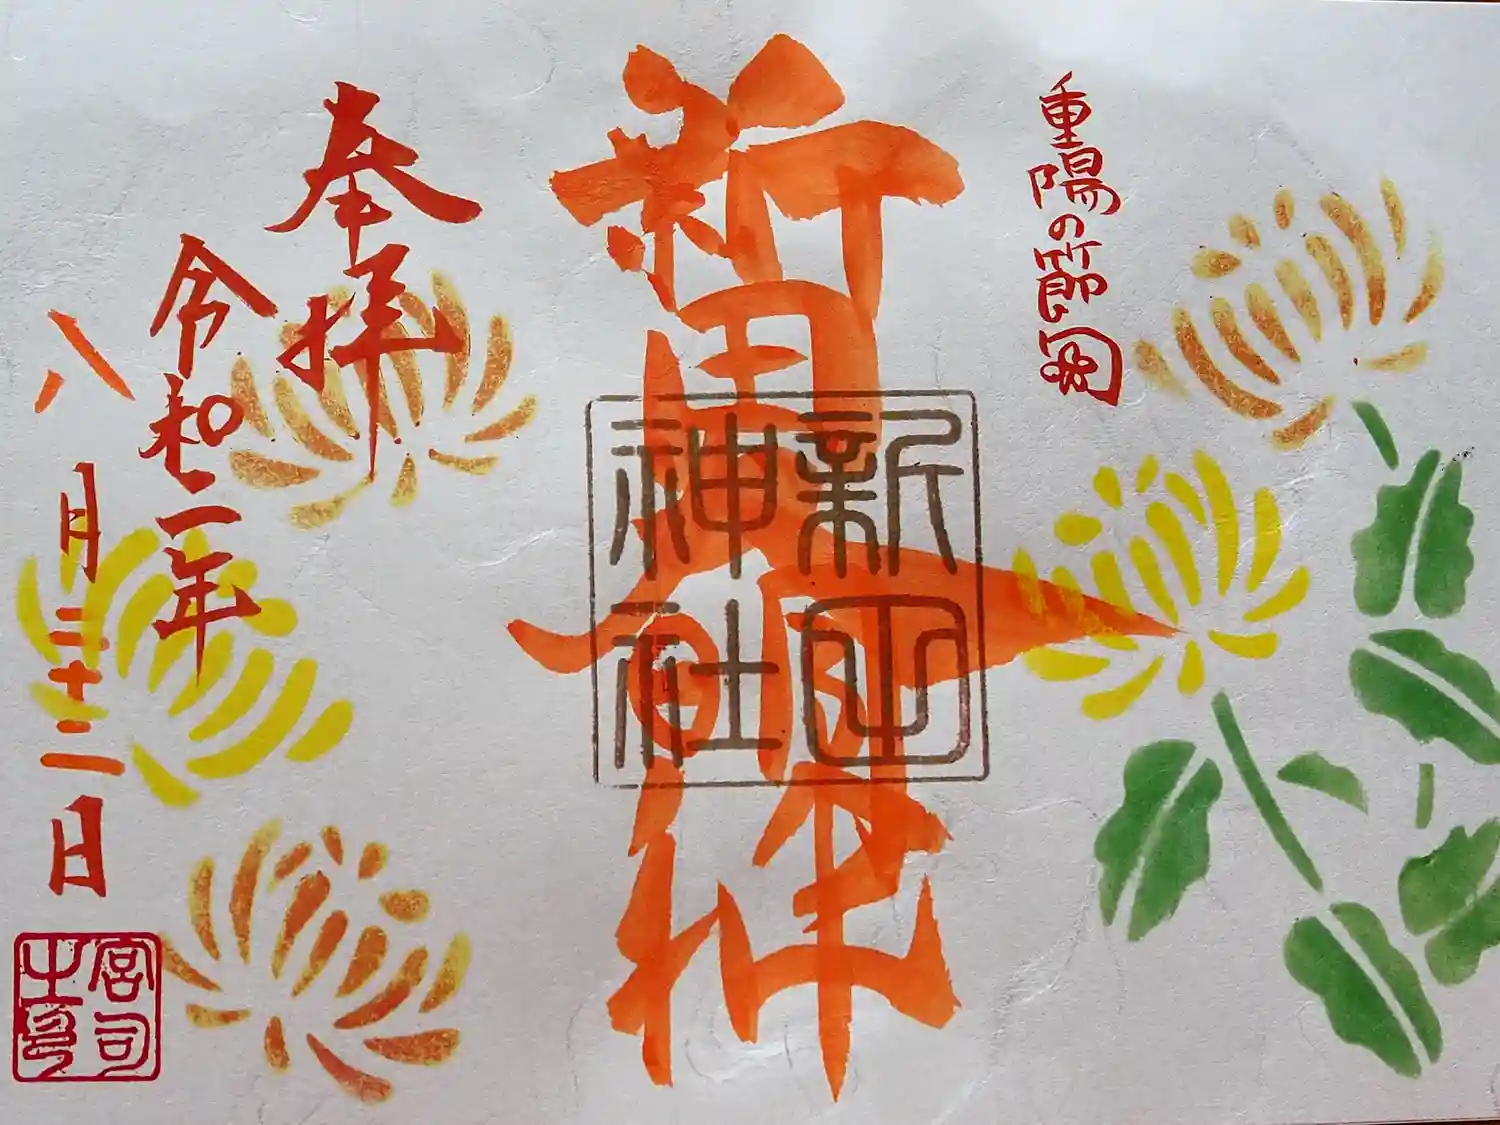 重陽の節句
新田大明神
新田神社
奉拝
令和二年
八月二十二日
宮司之印